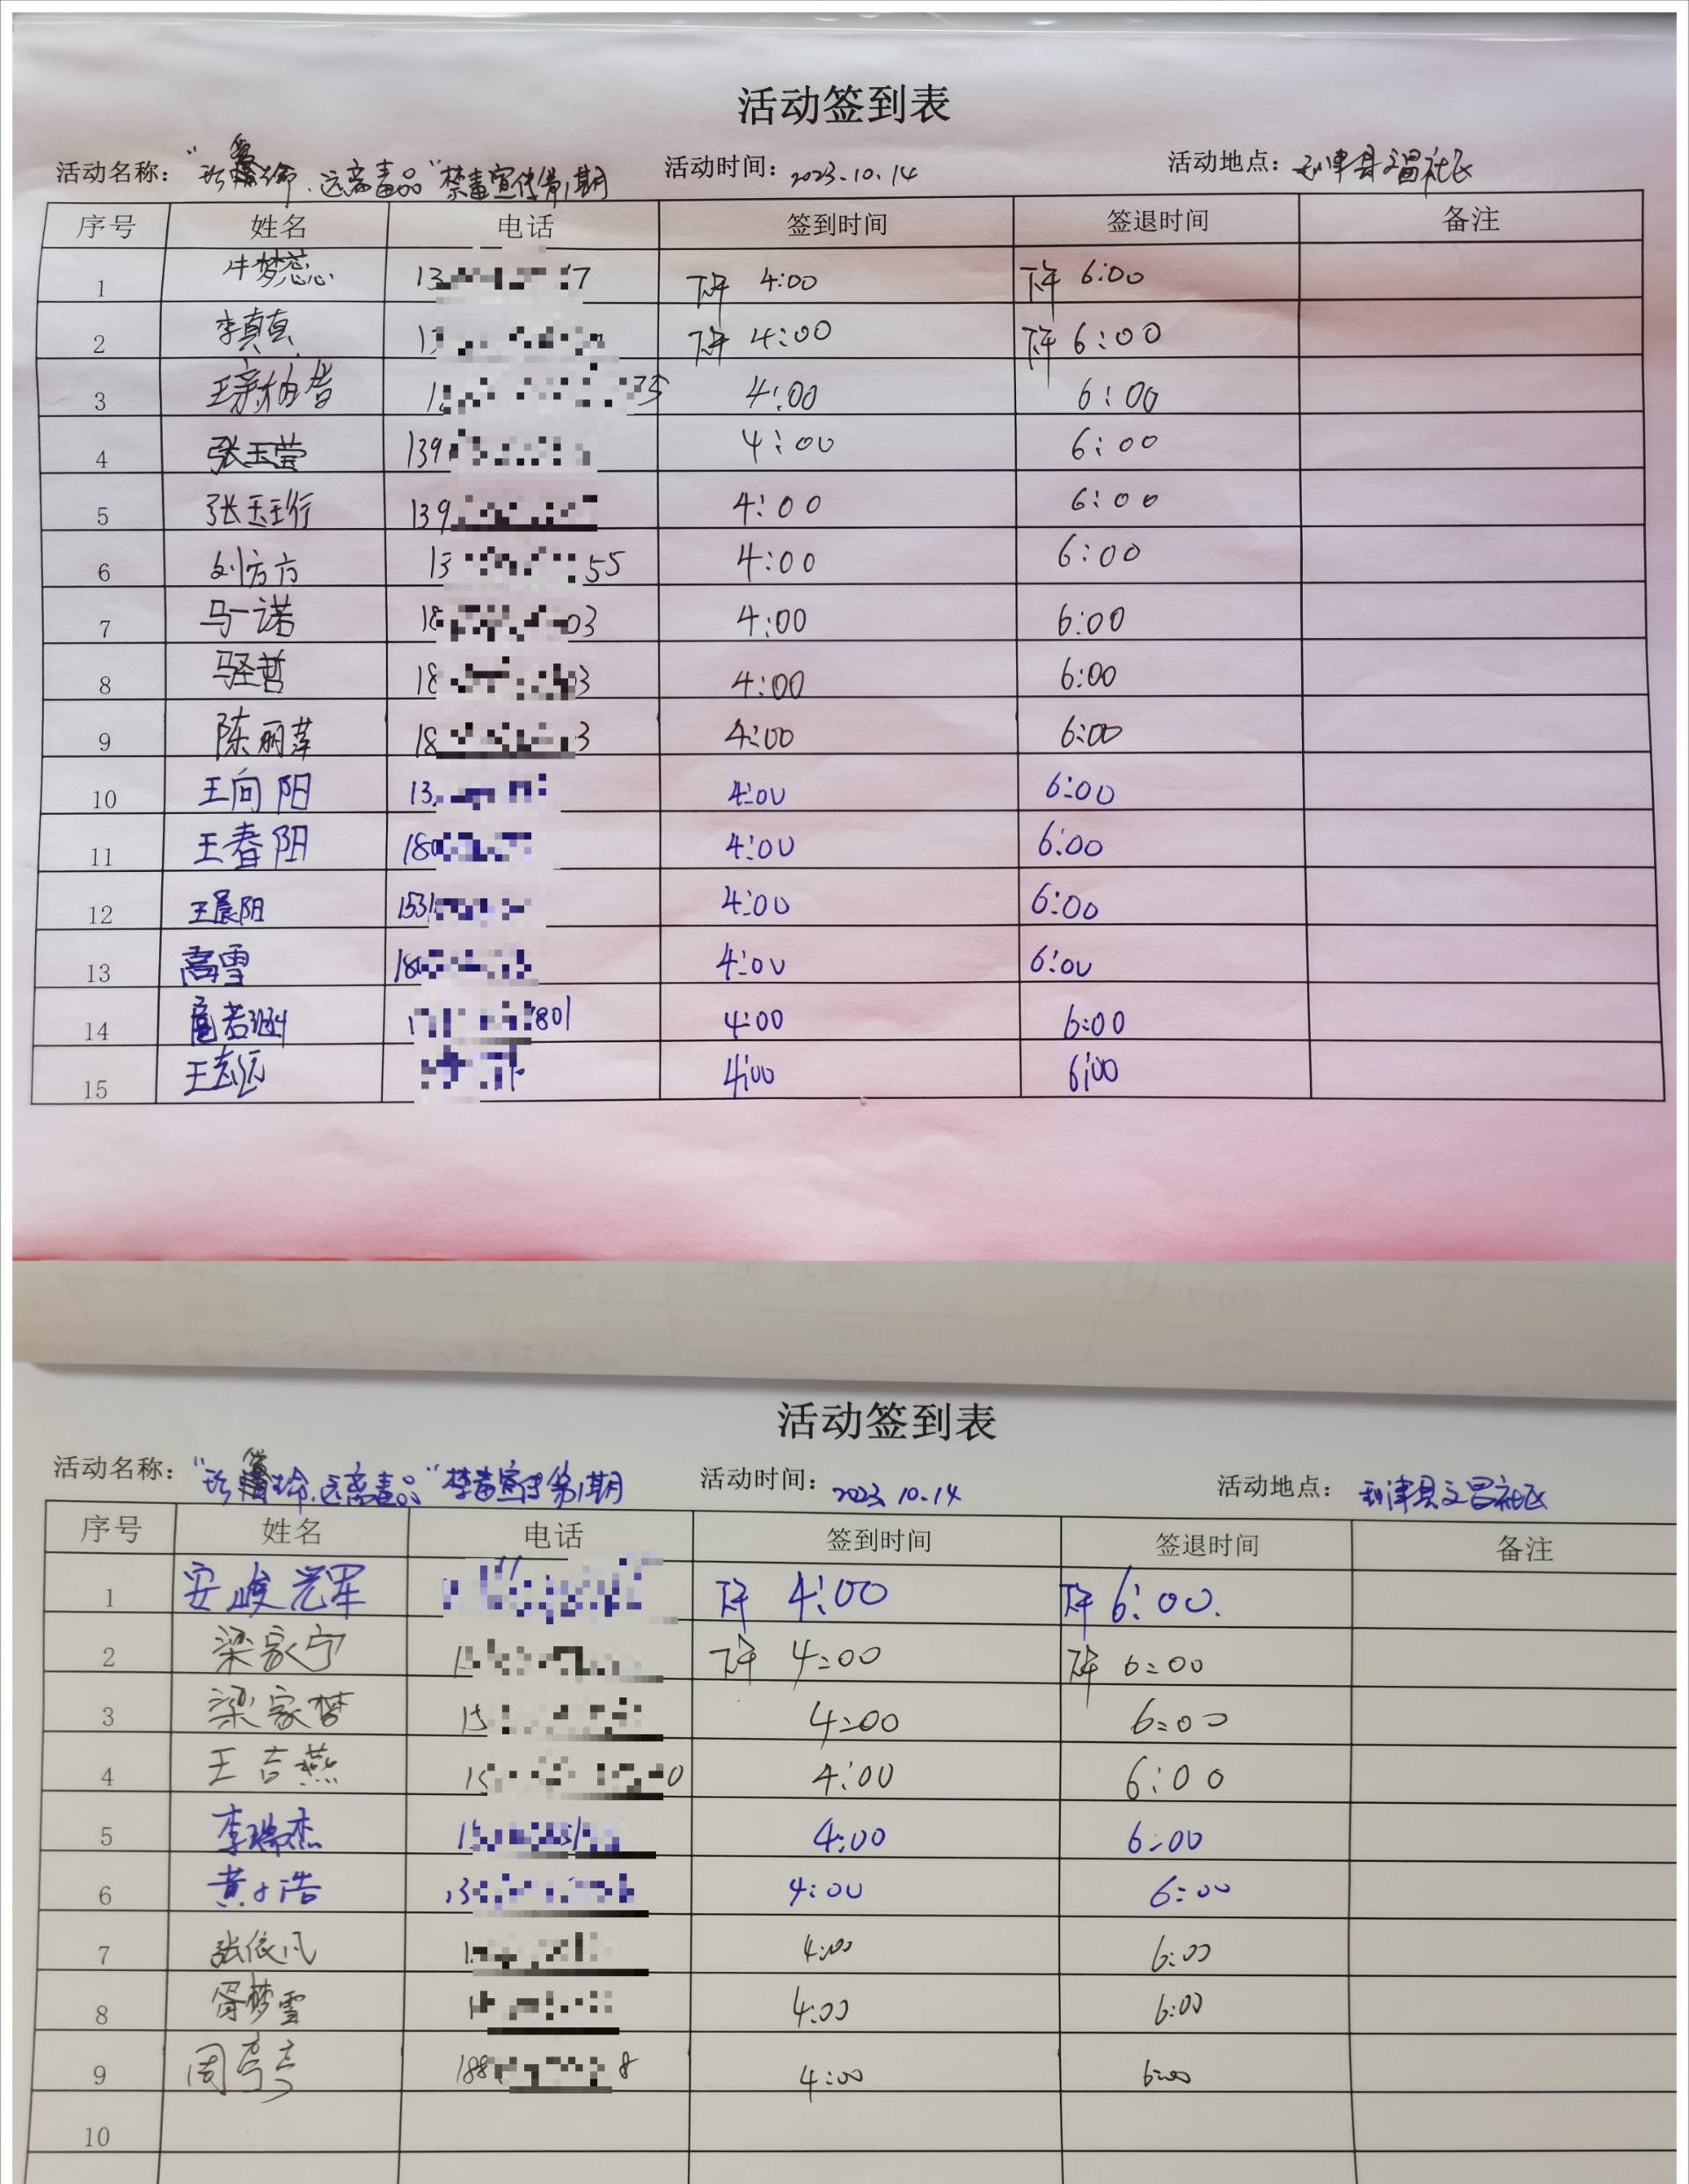 活动签到表
活动名称："珍爱生命、远离毒品"禁毒宣传第1期 活动时间：2023.10.14 活动地点：利津县文昌社区
序号 姓名 电话 签到时间 签退时间 备注
1 牛梦蕊 13 7 下午 4:00 下午 6:00
2 李真真 1 下午 4:00 下午 6:00
3 1 75 4:00 6:00
4 张玉莹 139 4:00 6:00
5 张玉珩 139 4:00 6:00
6 刘方方 13 55 4:00 6:00
7 马一诺 18 03 4:00 6:00
8 马圣哲 18 3 4:00 6:00
9 陈丽萍 18 3 4:00 6:00
10 王向阳 13 4:00 6:00
11 王春阳 180 4:00 6:00
12 王晨阳 153 4:00 6:00
13 高雪 180 4:00 6:00
14 1 801 4:00 6:00
15 4:00 6:00
活动签到表
活动名称："珍爱生命、远离毒品"禁毒宣传第1期 活动时间：2023.10.14 活动地点：利津县文昌社区
序号 姓名 电话 签到时间 签退时间 备注
1 安峻辉 下午 4:00 下午 6:00.
2 梁家宁 1 下午 4:00 下午 6:00
3 梁家梦 15 4:00 6:00
4 王吉燕 15 0 4:00 6:00
5 李瑞杰 1 4:00 6:00
6 13 4:00 6:00
7 张依凡 1 4:00 6:00
8 胥梦雪 1 4:00 6:00
9 周亭亭 188 8 4:00 6:00
10